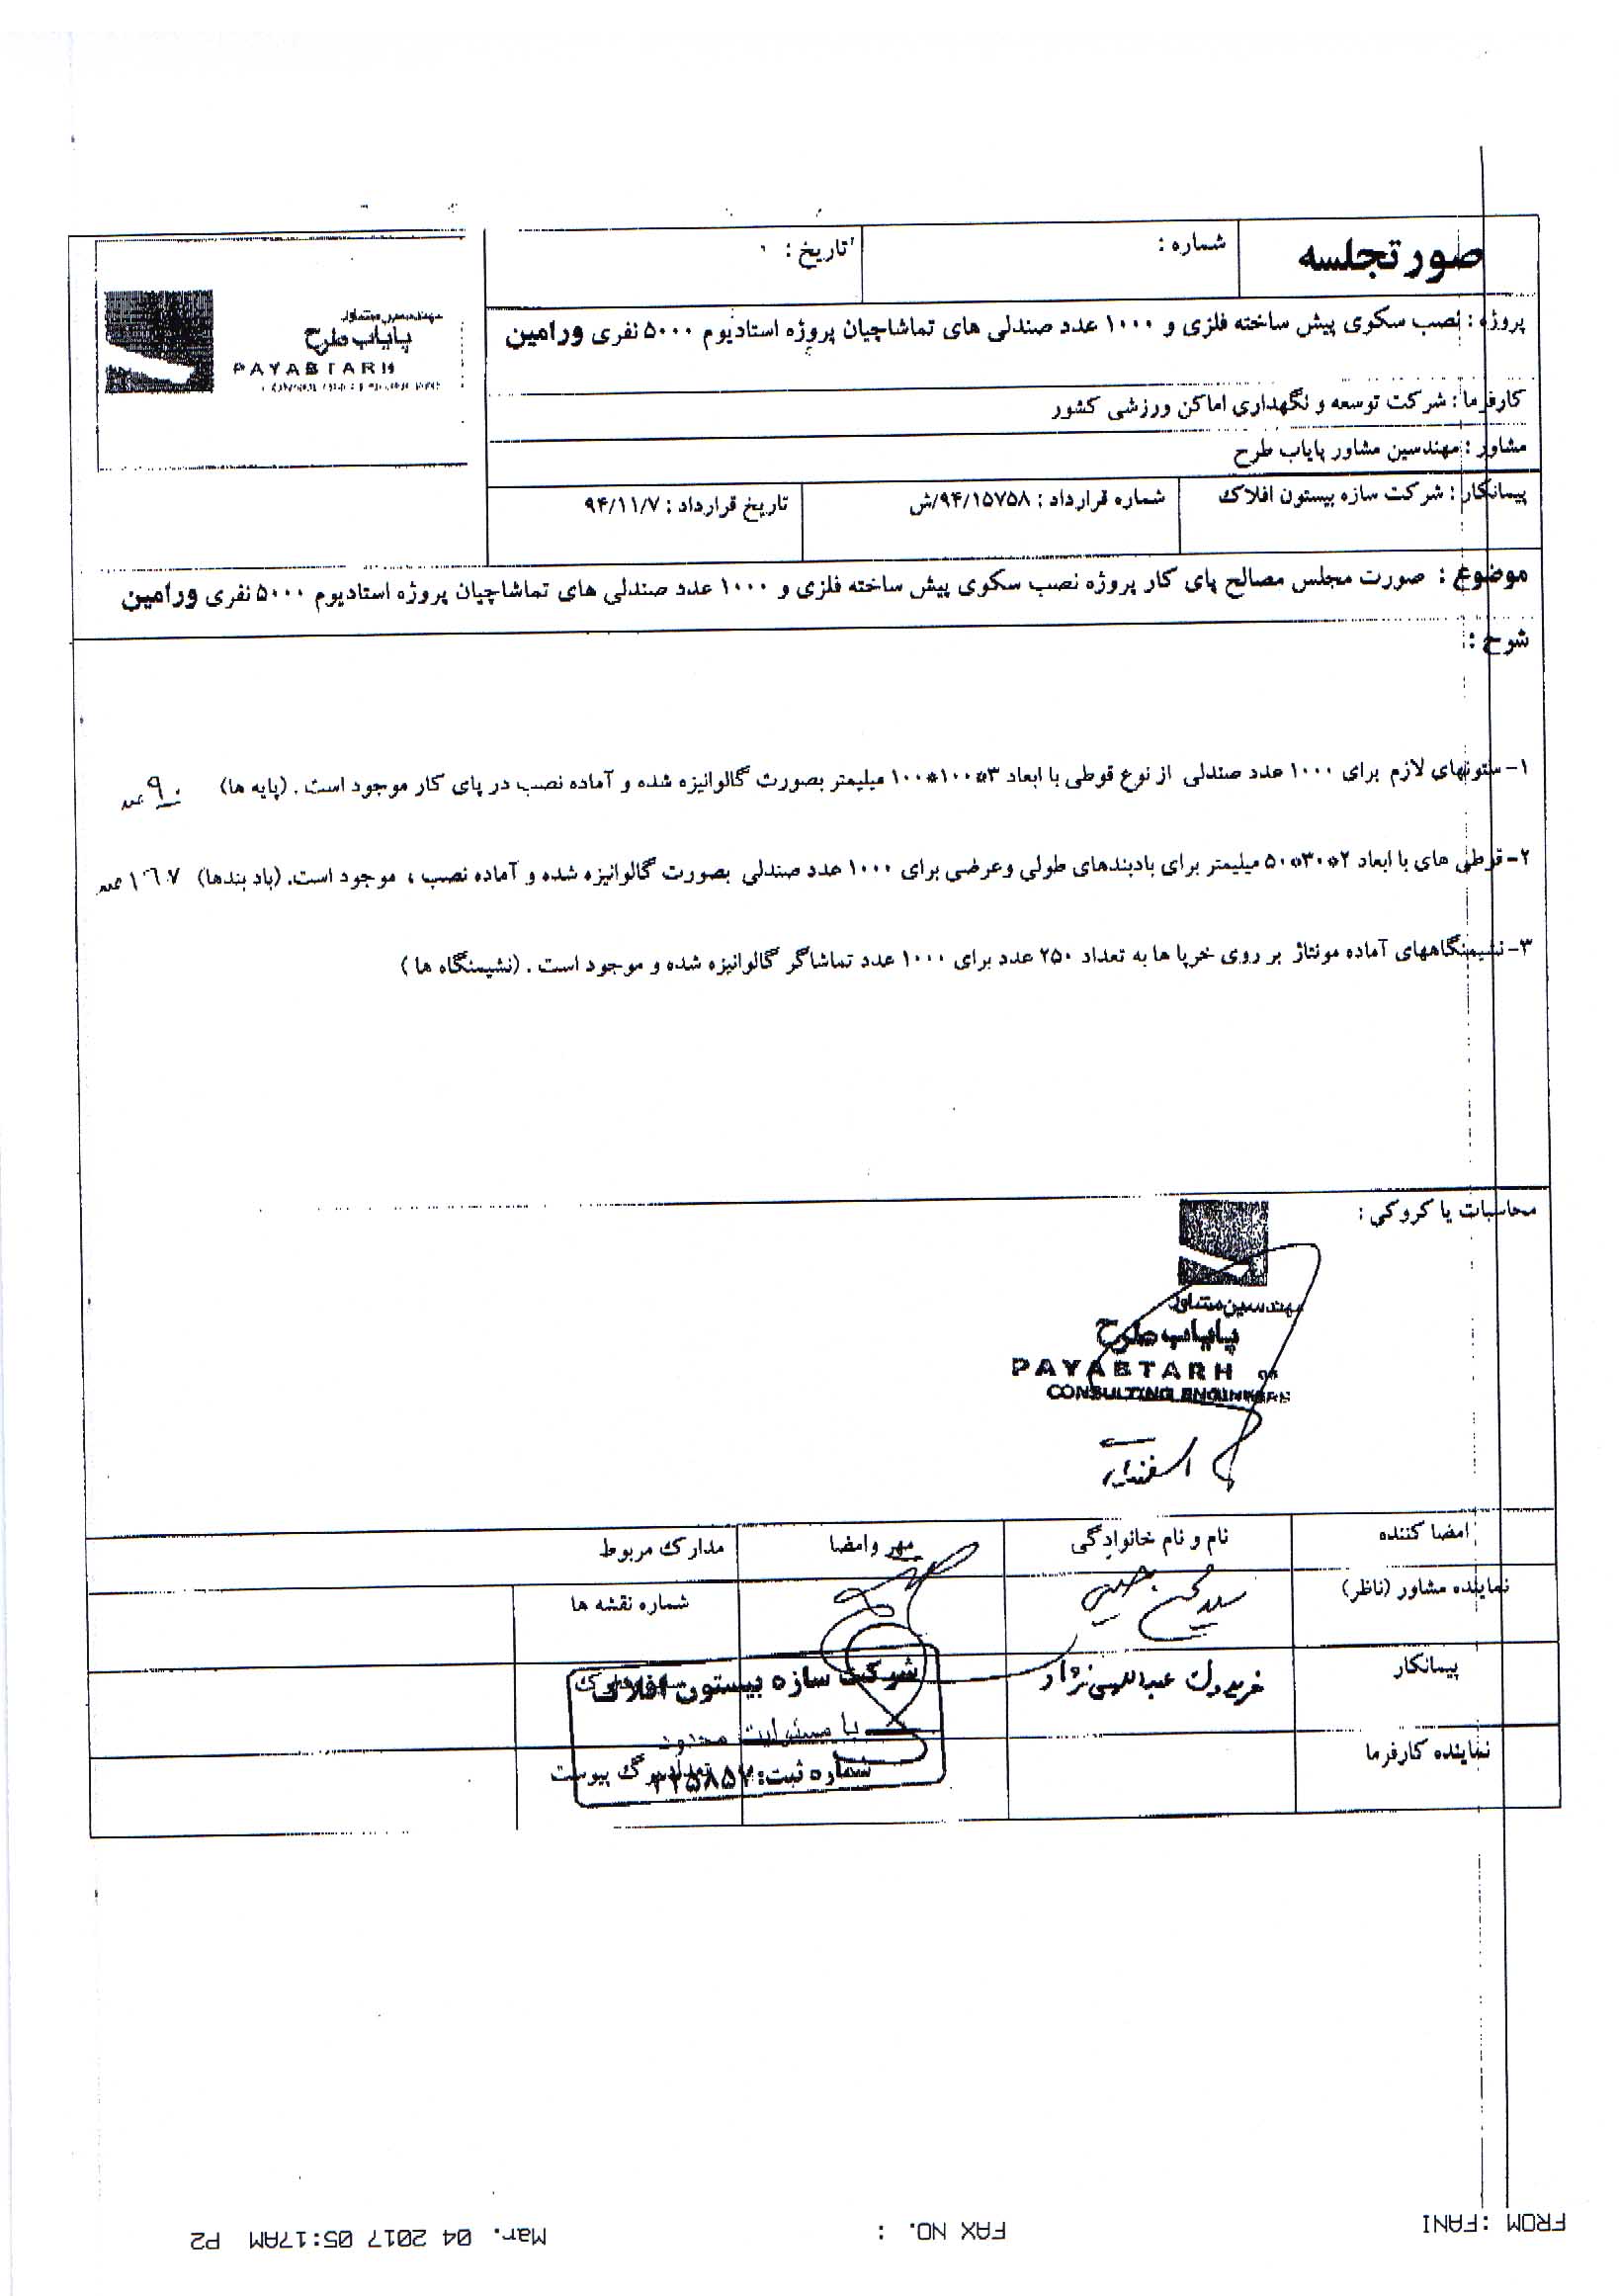 صورتجلسه
شماره :
تاریخ :
مهندسین مشاور
پایاب طرح
PAYABTARH
پروژه : نصب سکوی پیش ساخته فلزی و ۱۰۰۰ عدد صندلی های تماشاچیان پروژه استادیوم ۵۰۰۰ نفری ورامین
کارفرما : شرکت توسعه و نگهداری اماکن ورزشی کشور
مشاور : مهندسین مشاور پایاب طرح
پیمانکار : شرکت سازه بیستون افلاک
شماره قرارداد : ۹۴/۱۵۷۵۸/ش
تاریخ قرارداد : ۹۴/۱۱/۷
موضوع : صورت مجلس مصالح پای کار پروژه نصب سکوی پیش ساخته فلزی و ۱۰۰۰ عدد صندلی های تماشاچیان پروژه استادیوم ۵۰۰۰ نفری ورامین
شرح :
۱- ستونهای لازم برای ۱۰۰۰ عدد صندلی از نوع قوطی با ابعاد ۳*۱۰۰*۱۰۰ میلیمتر بصورت گالوانیزه شده و آماده نصب در پای کار موجود است . (پایه ها) ۹۰ عدد
۲- قوطی های با ابعاد ۲*۳۰*۵۰ میلیمتر برای بادبندهای طولی وعرضی برای ۱۰۰۰ عدد صندلی بصورت گالوانیزه شده و آماده نصب ، موجود است. (باد بندها) عدد
۳- نشیمنگاههای آماده مونتاژ بر روی خرپا ها به تعداد ۲۵۰ عدد برای ۱۰۰۰ عدد تماشاگر گالوانیزه شده و موجود است . (نشیمنگاه ها )
محاسبات یا کروکی :
مهندسین مشاور
پایاب طرح
PAYABTARH
CONSULTING ENGINEERS
اسفندیار
امضا کننده
نام و نام خانوادگی
مهر وامضا
مدارک مربوط
نماینده مشاور (ناظر)
شماره نقشه ها
پیمانکار
شرکت سازه بیستون افلاک
با مسئولیت محدود
نماینده کارفرما
شماره ثبت:
برگ پیوست
FROM :FANI
FAX NO. :
Mar. 04 2017 05:17AM P2